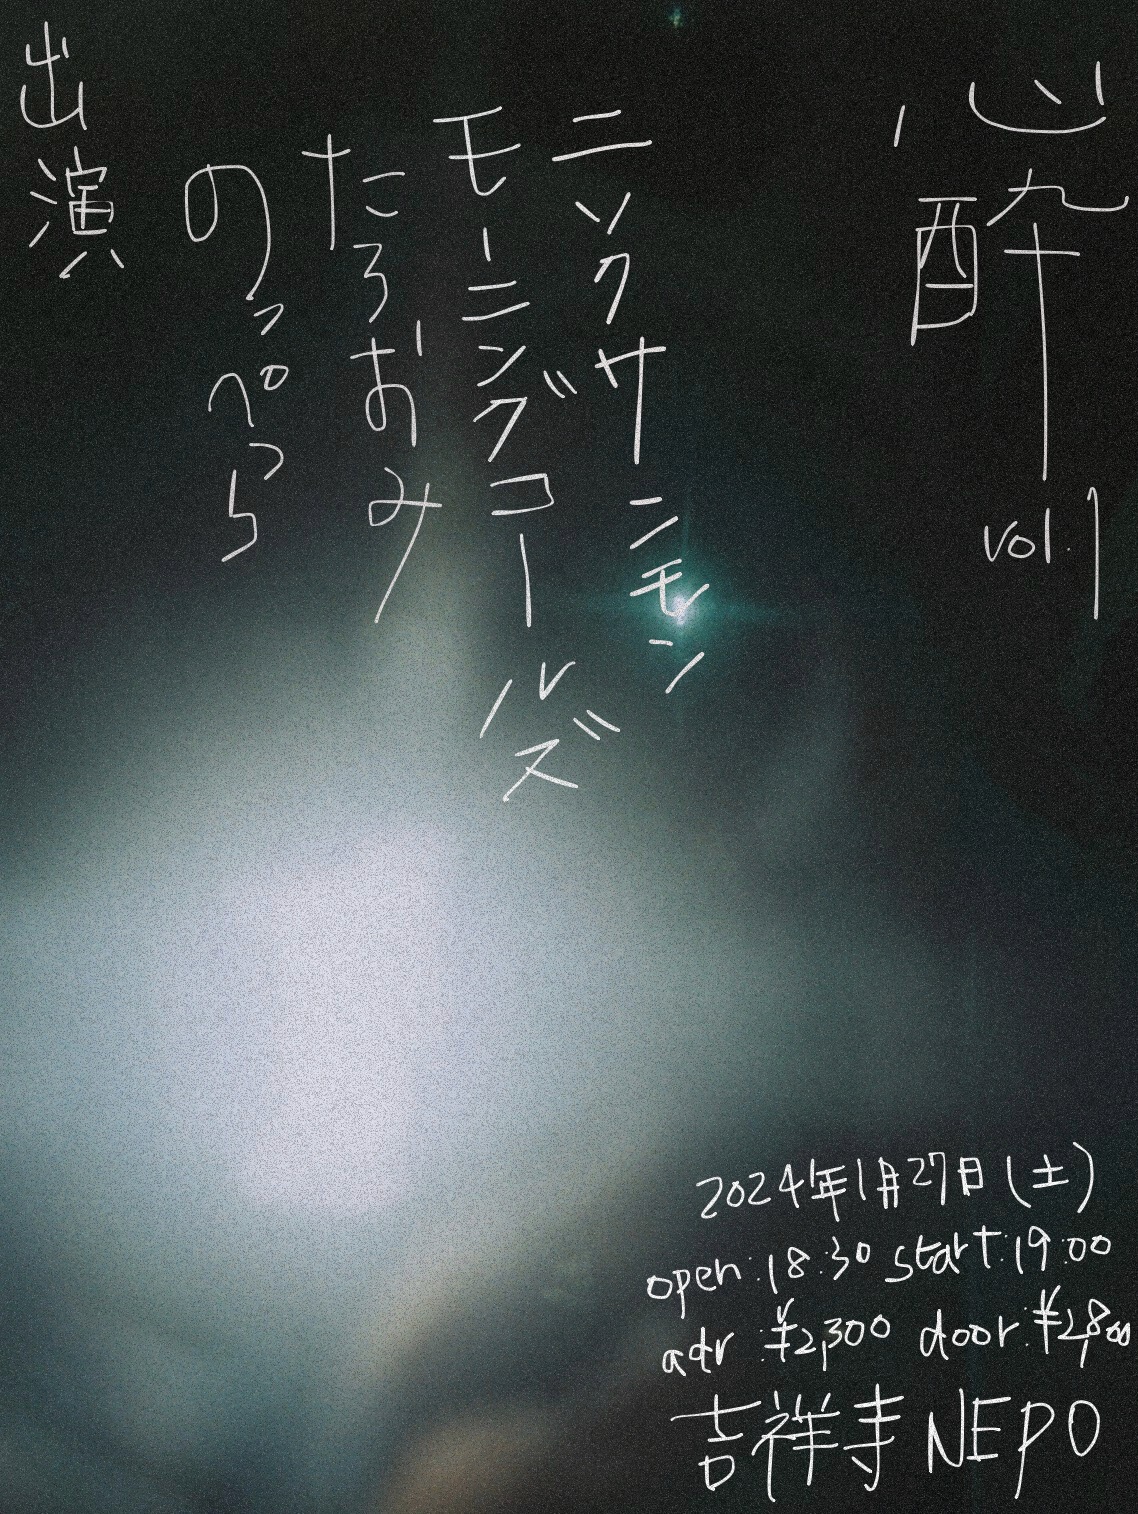 心酔
vol.1
ニックサニモン
モーニングコールズ
たろおみ
のっぺら
出演
2024年1月27日(土)
open:18:30 start:19:00
adv:¥2,300 door:¥2,800
吉祥寺NEPO